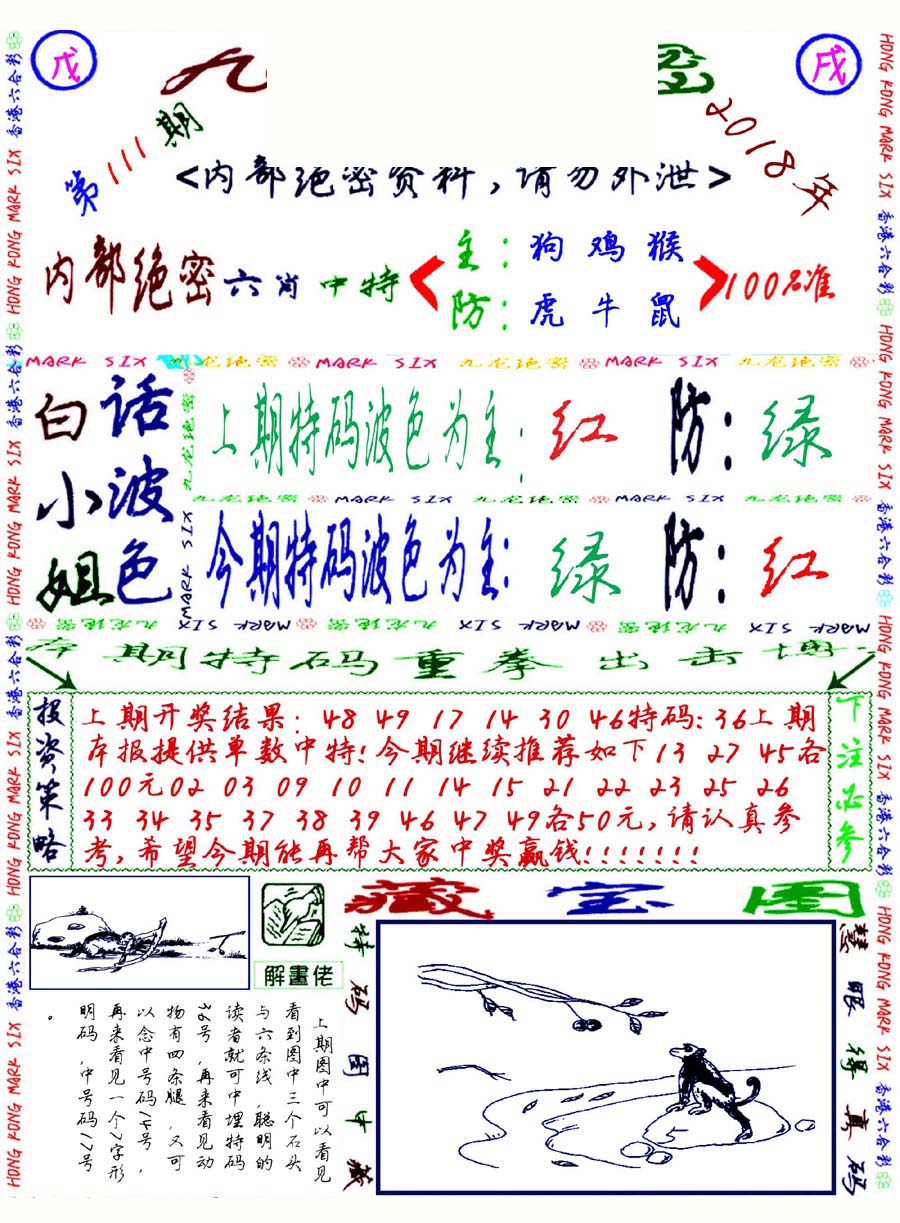 戊
戌
第111期
2018年
<内部绝密资料,请勿外泄>
内部绝密六肖中特
主:狗 鸡 猴
防:虎 牛 鼠
100%准
MARK SIX 九龙绝密 MARK SIX 九龙绝密 MARK SIX
白小姐
话波色
上期特码波色为主:红 防:绿
九龙绝密 MARK SIX 九龙绝密 MARK SIX 九龙绝密
今期特码波色为主:绿 防:红
本期特码重拳出击博
投资策略
上期开奖结果: 48 49 17 14 30 46特码:36上期
本报提供单数中特!今期继续推荐如下13 27 45各
100元02 03 09 10 11 14 15 21 22 23 25 26
33 34 35 37 38 39 46 47 49各50元,请认真参
考,希望今期能再帮大家中奖赢钱!!!!!!!
下注必参
藏宝图
解畫佬
上期图中可以看见
看到图中三个石头
与六条线,聪明的
读者就可中埋特码
36号,再来看见动
物有四条腿,又可
以念中号码14号,
再来看见一个7字形
明码,中号码17号
。
特码图中藏
慧眼得真码
HONG KONG MARK SIX 香港六合彩
HONG KONG MARK SIX 香港六合彩